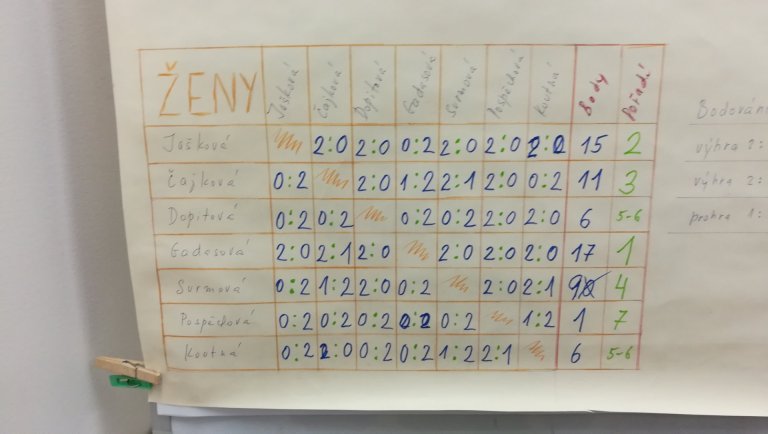 ŽENY Jošková Čajková Dopitová Gadasová Surmová Pospěchová Koutná Body Pořadí
Jošková 2:0 2:0 0:2 2:0 2:0 2:0 15 2
Čajková 0:2 2:0 1:2 2:1 2:0 0:2 11 3
Dopitová 0:2 0:2 0:2 0:2 2:0 2:0 6 5-6
Gadasová 2:0 2:1 2:0 2:0 2:0 2:0 17 1
Surmová 0:2 1:2 2:0 0:2 2:0 2:1 9 4
Pospěchová 0:2 0:2 0:2 0:2 0:2 1:2 1 7
Koutná 0:2 2:0 0:2 0:2 1:2 2:1 6 5-6
Bodován
výhra 2:
výhra 2:
prohra 1: